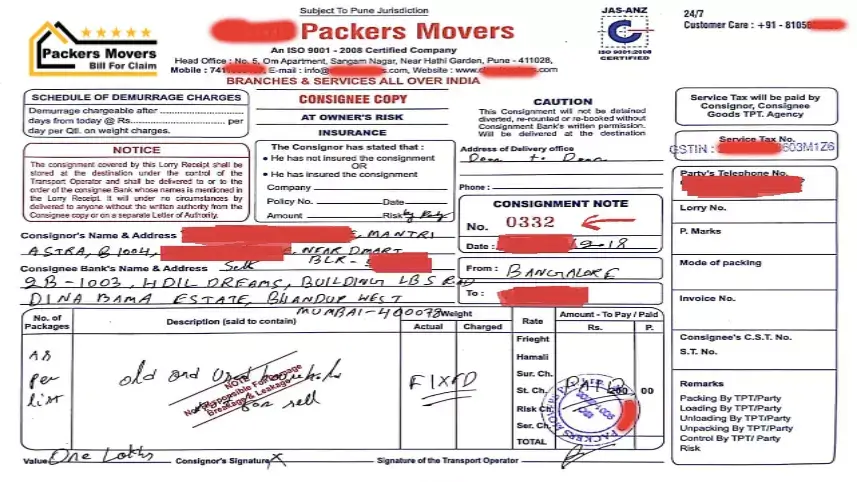 Subject To Pune Jurisdiction
JAS-ANZ
24/7
Customer Care : +91 - 8105
Packers Movers
Packers Movers
Bill For Claim
An ISO 9001 - 2008 Certified Company
ISO 9001:2008
CERTIFIED
Head Office : No. 5, Om Apartment, Sangam Nagar, Near Hathi Garden, Pune - 411028,
Mobile : 741 E-mail : info@ s.com, Website : www. .com
BRANCHES & SERVICES ALL OVER INDIA
SCHEDULE OF DEMURRAGE CHARGES
Demurrage chargeable after
days from today @ Rs. per
day per Qtl. on weight charges.
NOTICE
The consignment covered by this Lorry Receipt shall be
stored at the destination under the control of the
Transport Operator and shall be delivered to or to the
order of the consignee Bank whose names is mentioned in
the Lorry Receipt. It will under no circumstances by
delivered to anyone without the written authority from the
Consignee copy or on a separate Letter of Authority.
CONSIGNEE COPY
AT OWNER'S RISK
INSURANCE
The Consignor has stated that :
• He has not insured the consignment
OR
• He has insured the consignment
Company
Policy No. Date
Amount Risk by Party
CAUTION
This Consignment will not be detained
diverted, re-rounted or re-booked without
Consignment Bank's written permission.
Will be delivered at the destination
Address of Delivery office
Door to Door
Phone :
CONSIGNMENT NOTE
No. 0332
Date : 9-18
From : BANGALORE
To :
Service Tax will be paid by
Consignor, Consignee
Goods TPT. Agency
Service Tax No.
GSTIN : 603M1Z6
Party's Telephone No.
Lorry No.
P. Marks
Mode of packing
Invoice No.
Consignee's C.S.T. No.
S.T. No.
Remarks
Packing By TPT/Party
Loading By TPT/Party
Unloading By TPT/Party
Unpacking By TPT/Party
Control By TPT/ Party
Risk
Consignor's Name & Address , MANTRI
ASTRA, B 1004, , NEAR DMART
BLR -
Consignee Bank's Name & Address Self
2B-1003, HDIL DREAMS, BUILDING LBS ROAD
DINA BAMA ESTATE, BHANDUP WEST
MUMBAI-400078
No. of
Packages
Description (said to contain)
Weight
Actual Charged
Rate
Amount - To Pay / Paid
Rs. P.
As
per
list
old and Used
for sell
NOTE
Not Responsible For
Breakage & Leakage
FIXED
Frieght
Hamali
Sur. Ch.
St. Ch. 00
Risk Ch.
Ser. Ch.
TOTAL
PAID
PACKERS MOV
Value One Consignor's Signature X Signature of the Transport Operator